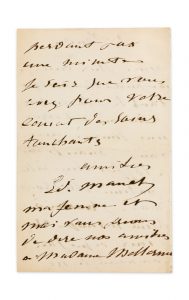 perdant pas
une minute
je sais que vous
avez pour votre
comat des soins
touchants
amitiés
Ed. Manet
ma femme et
moi vous prions
de dire nos amitiés
à Madame